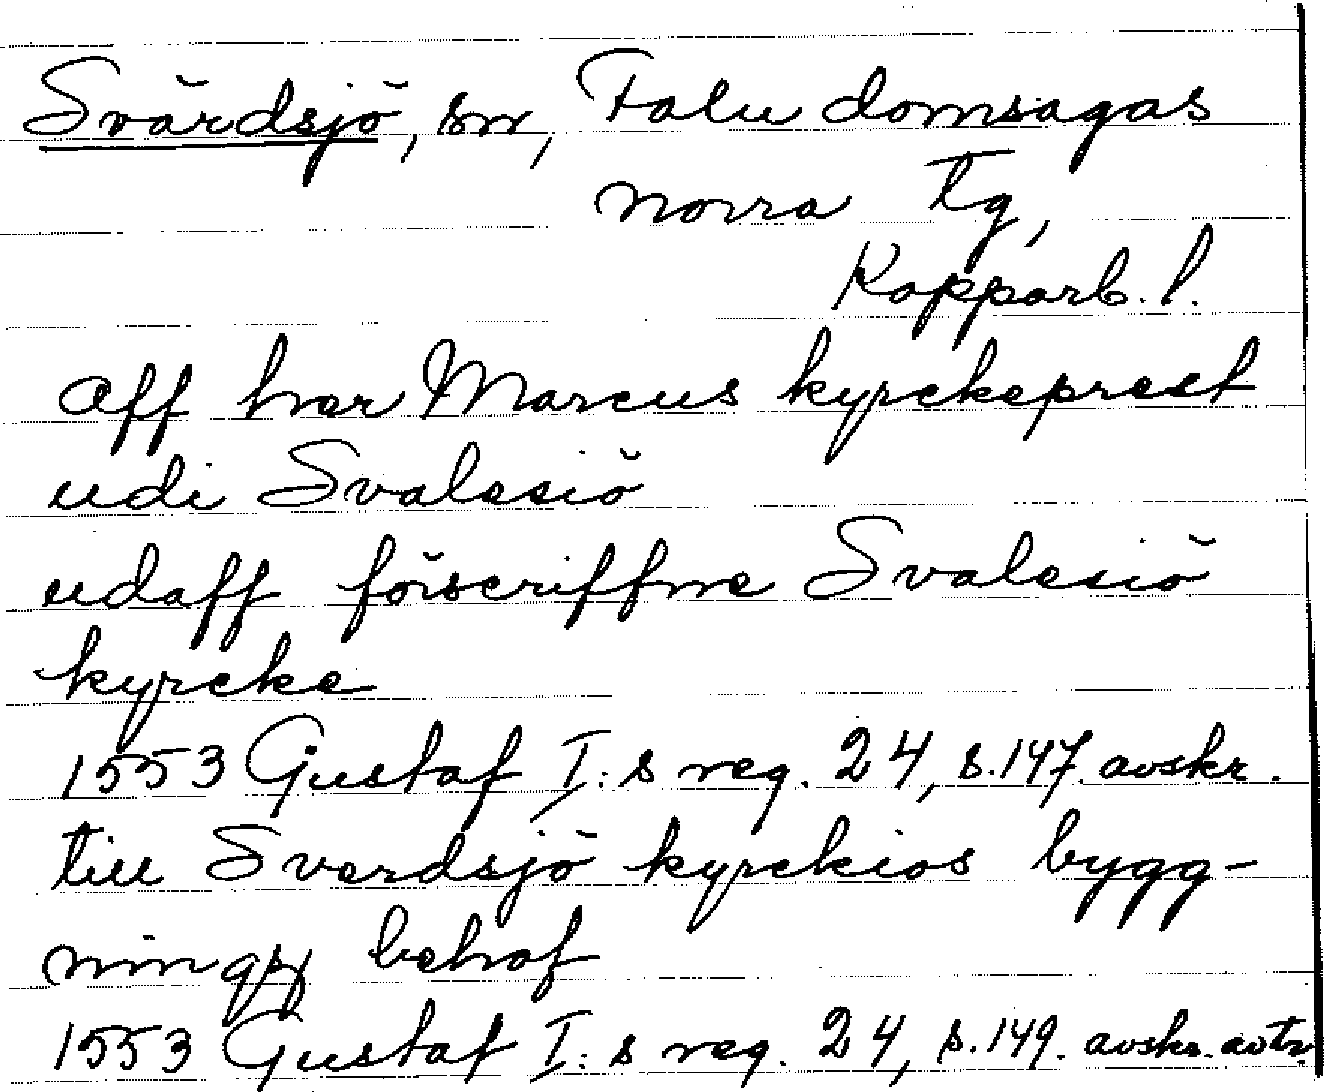 Svärdsjö, sn, Falu domsagas
norra tg,
Kopparb. l.
Aff her Marcus kyrckeprest
udi Svalesiö
udaff förscriffne Svalesiö
kyrcke
1553 Gustaf I:s reg. 24, s.147. avskr.
till Sverdsjö kyrckios bygg-
ning behof
1553 Gustaf I:s reg. 24, s.149. avskr. avtr.